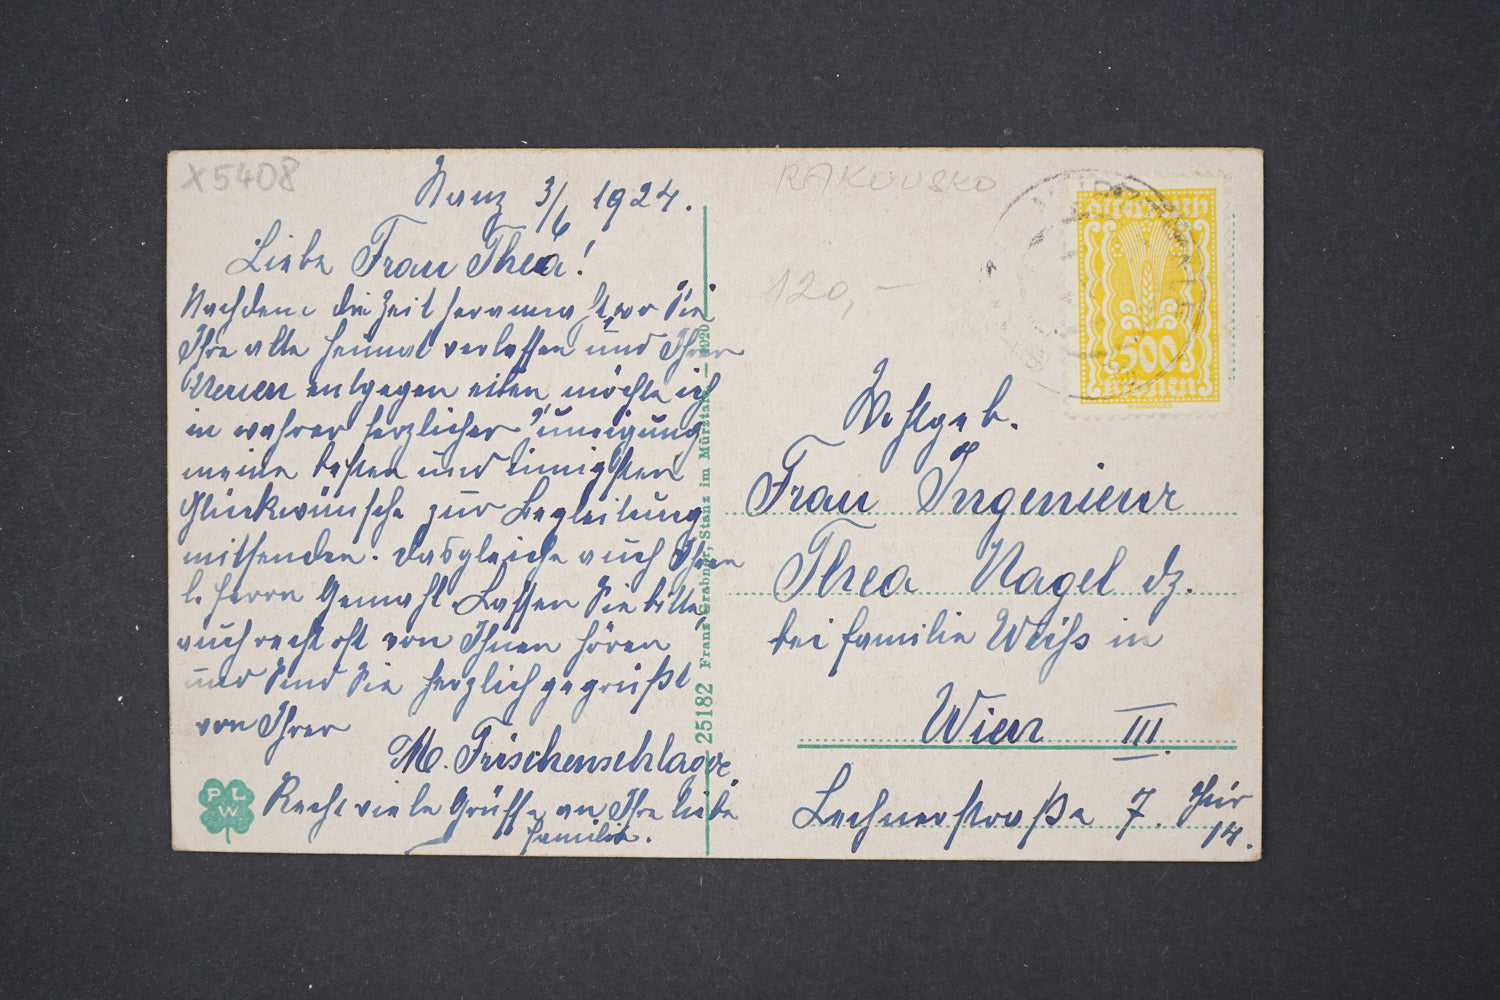 X5408
Stanz 3/6 1924.
Liebe Frau Thea!
Nachdem die Zeit herannaht, wo Sie
Ihre alte Heimat verlassen und Ihrer
Neuen entgegen eilen möchte ich
in wahrer herzlicher Zuneigung
meine besten und innigsten
Glückwünsche zur Begleitung
mitsenden. Dasgleiche auch Ihren
l. Herrn Gemahl. Lassen Sie bitte,
auch recht oft von Ihnen hören
und sind Sie herzlich gegrüßt
von Ihrer
M. Frischenschlager
Recht viele Grüsse an Ihre liebe
Familie.
PLW
25182 Franz Grabner, Stanz im Mürztale — 1920
RAKOUSKO
120,–
Österreich
500
Kronen
Wohlgeb.
Frau Ingenieur
Thea Nagel dz.
bei Familie Weiß in
Wien III.
Lechnerstraße 7. Thür
14.